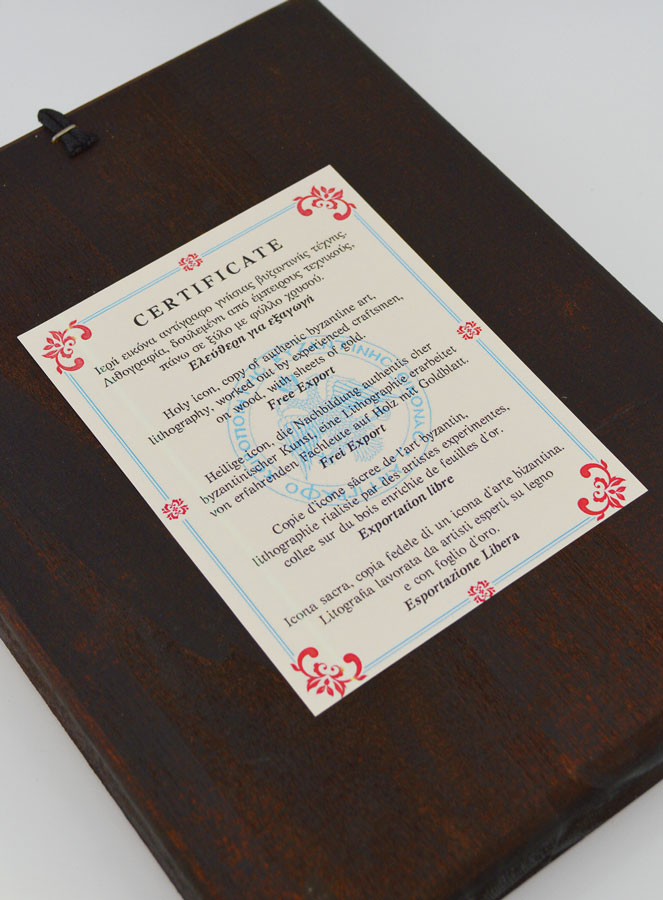 CERTIFICATE
Ιερή εικόνα αντίγραφο γνήσιας βυζαντινής τέχνης.
Λιθογραφία, δουλεμένη από έμπειρους τεχνικούς,
πάνω σε ξύλο με φύλλο χρυσού.
Ελεύθερη για εξαγωγή
Holy icon, copy of authenic byzantine art,
lithography, worked out by experienced craftsmen,
on wood, with sheets of gold.
Free Export
Heilige icon, die Nachbildung authentis cher
byzantinischer Kunst, eine Lithographie erarbeitet
von erfahrenden Fachleute auf Holz mit Goldblatt.
Frei Export
Copie d'icona sacree de l'art byzantin,
lithographie rialisie par des artistes experimentes,
collee sur du bois enrichie de feuilles d'or.
Exportation libre
Icona sacra, copia fedele di un icona d'arte bizantina.
Litografia lavorata da artisti esperti su legno
e con foglio d'oro.
Esportazione Libera